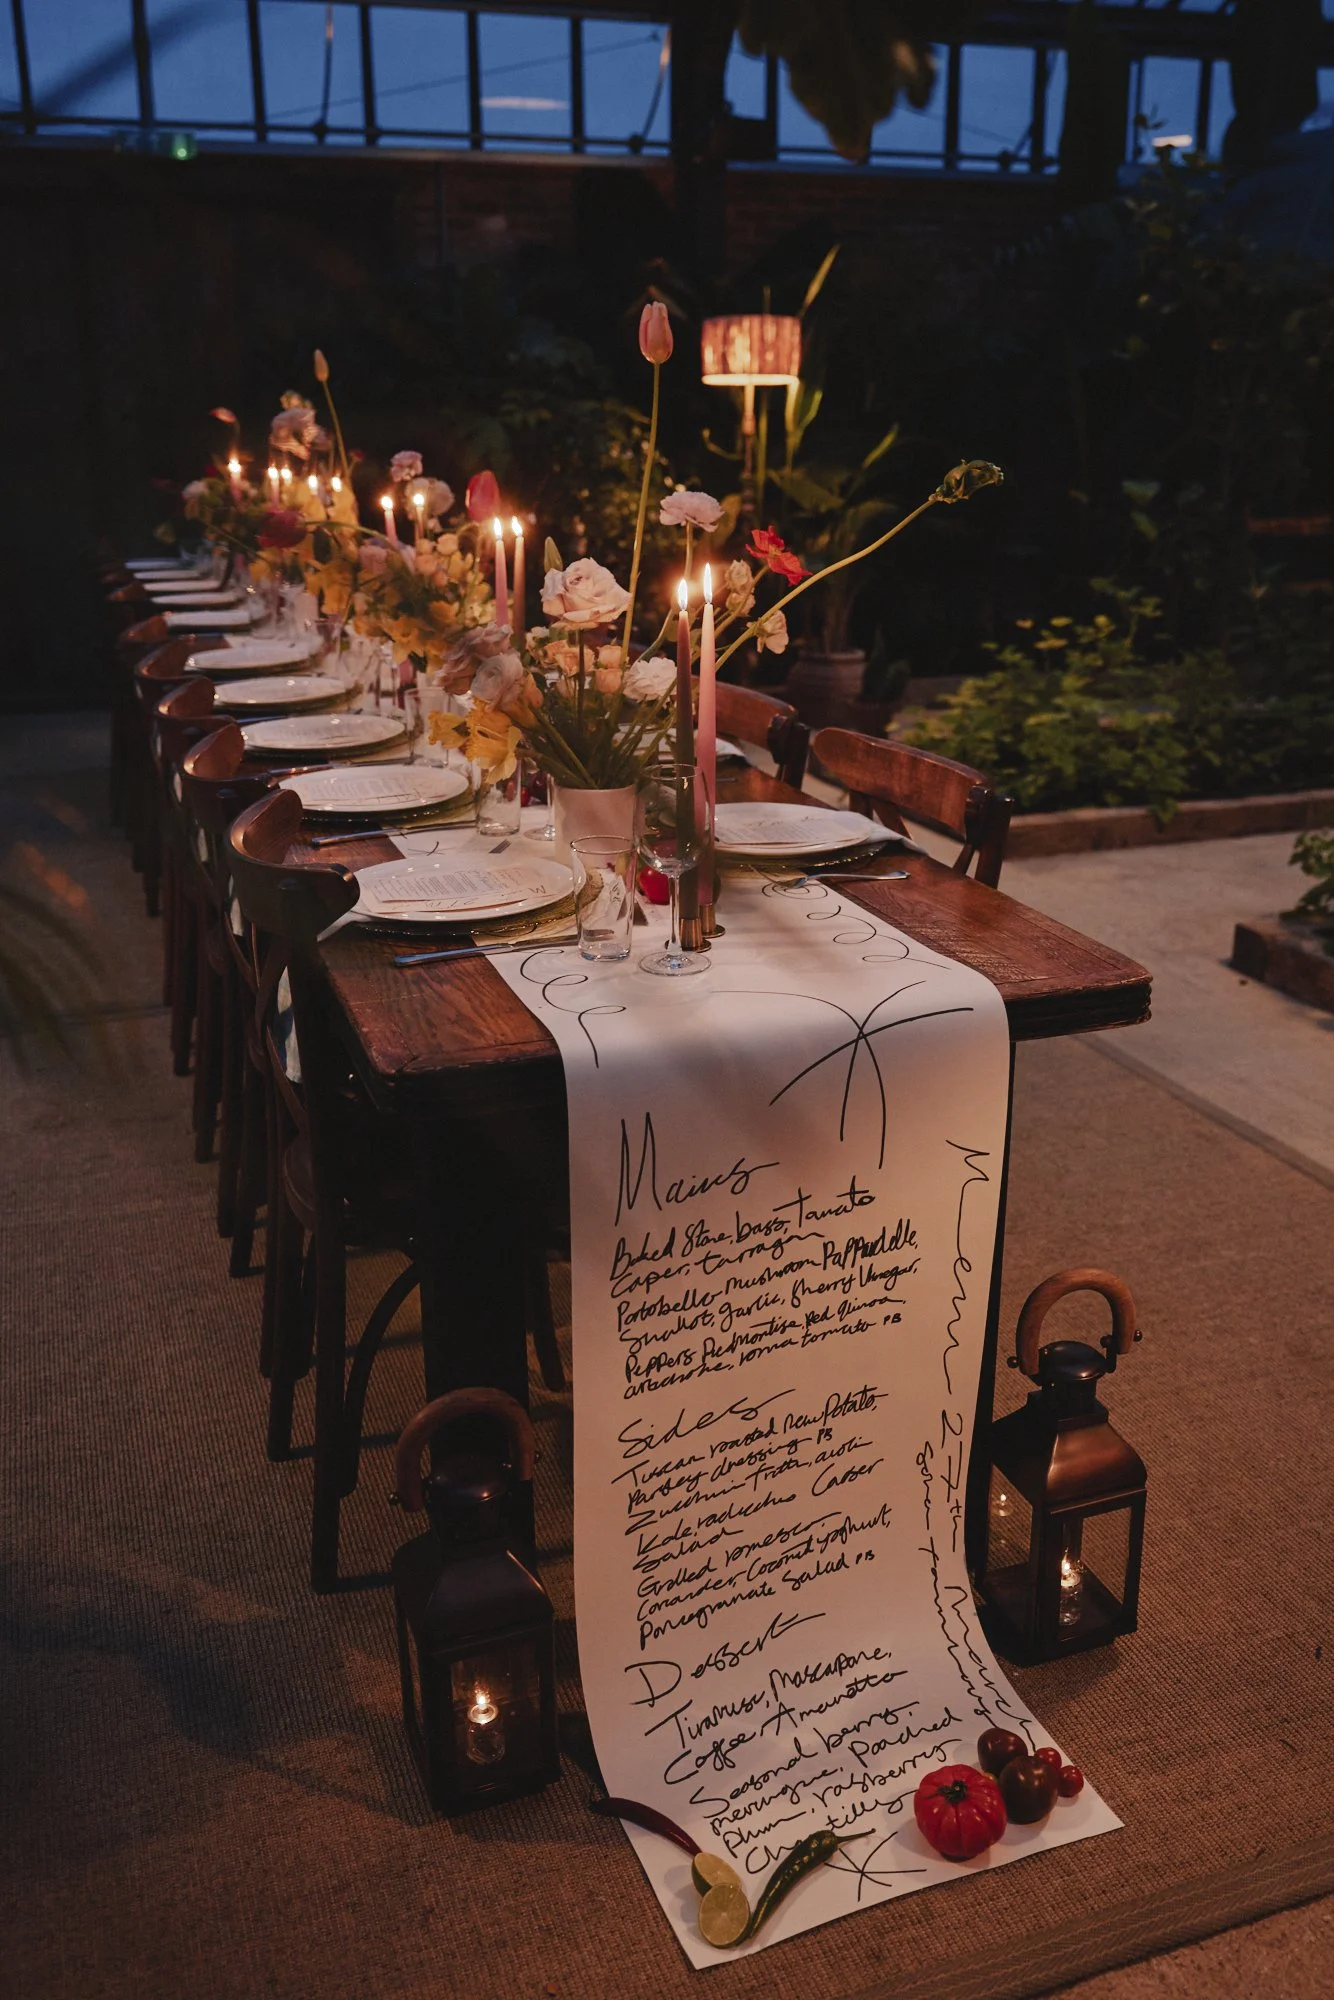 Mains
Baked Stone bass, Tomato
Caper, tarragon
Portobello Mushroom Pappardelle,
Shallot, garlic, Sherry Vinegar,
Peppers Piedmontise, Red Quinoa
artichoke, roma tomato PB
Sides
Tuscan roasted New Potato,
Parsley dressing PB
Zucchini Fritti, aioli
Kale, radicchio Caeser
Salad
Grilled romesco
Coriander, Coconut yoghurt,
Pomegranate Salad PB
Dessert
Tiramisu, Mascapone,
Coffee, Amaretto
Seasonal berry,
meringue, Poached
Plum, raspberry
Chantilly
Menu 27th March